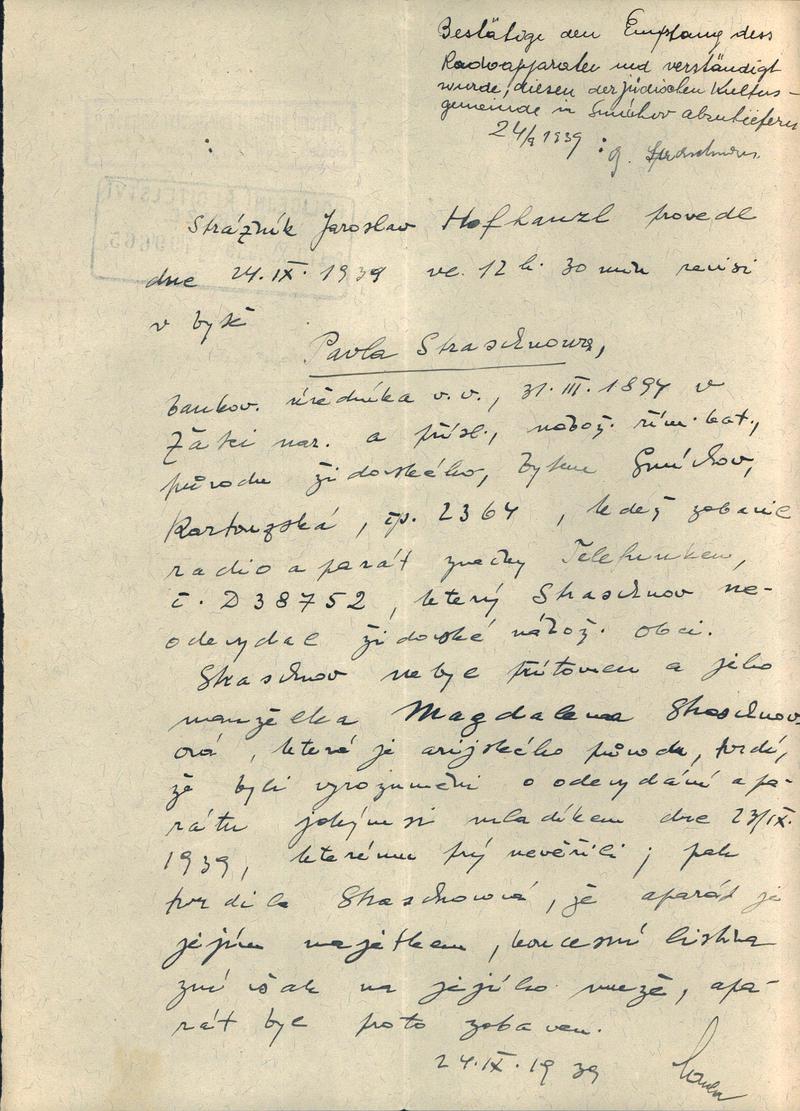 Bestätige den Empfang dess
Radioapparates und verständigt
wurde, diesen der jüdischen Kultus-
gemeinde in Smíchov abzuliefern
24/9 1939
Strážník Jaroslav Hofhanzl provedl
dne 24.IX.1939 ve 12 h. 30 min revisi
v bytě
Pavla Straschnowa,
bankov. úředníka v.v., 31.III.1897 v
Žatci nar. a přísl., nábož. řím. kat.,
původu židovského, bytem Smíchov,
Kartouzská, čp. 2364, kdež zabavil
radioaparát značky Telefunken,
č. D 38752, který Straschnov ne-
odevzdal židovské nábož. obci.
Straschnov nebyl přítomen a jeho
manželka Magdalena Straschnov-
ová, která je arijského původu, tvrdí,
že byli vyrozuměni o odevzdání apa-
rátu jakýmsi mladíkem dne 23/IX.
1939, kterému prý nevěřili; pak
tvrdila Straschnová, že aparát je
jejím majetkem, koncesní listina
zní však na jejího muže, apa-
rát byl proto zabaven.
24.IX.1939